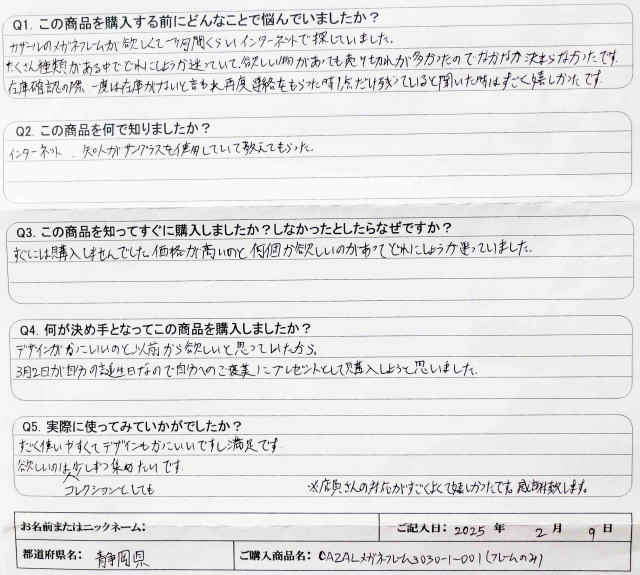 Q1. この商品を購入する前にどんなことで悩んでいましたか？
カザールのメガネフレームが欲しくて一ヶ月間くらいインターネットで探していました。
たくさん種類がある中でどれにしようか迷っていて、欲しい物があっても売り切れが多かったのでなかなか決まらなかったです。
在庫確認の際、一度は在庫がないと言われ、再度連絡をもらった時1点だけ残っていると聞いた時はすごく嬉しかったです。
Q2. この商品を何で知りましたか？
インターネット、知人がサングラスを使用していて教えてもらった。
Q3. この商品を知ってすぐに購入しましたか？しなかったとしたらなぜですか？
すぐには購入しませんでした。価格が高いのと何個か欲しいのがあってどれにしようか迷っていました。
Q4. 何が決め手となってこの商品を購入しましたか？
デザインがかっこいいのと以前から欲しいと思っていたから。
3月2日が自分の誕生日なので自分へのご褒美にプレゼントとして購入しようと思いました。
Q5. 実際に使ってみていかがでしたか？
すごく使いやすくてデザインもかっこいいですし満足です。
欲しいのは少しずつ集めたいです。
コレクションとしても
※店員さんの対応がすごくよくて嬉しかったです。感謝致します。
お名前またはニックネーム：
ご記入日：2025年 2月 9日
都道府県名：静岡県
ご購入商品名：CAZALメガネフレーム3030-1-001（フレームのみ）